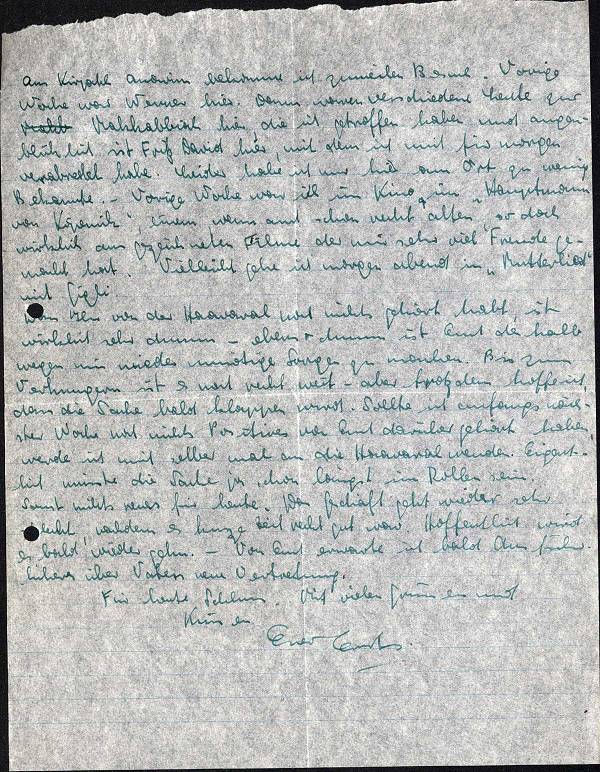 bekomme ich zuweilen Besuch. Vorige
Woche war Werner hier. Dann waren verschiedene Leute zur
hier, die ich getroffen habe und augen-
blicklich ist Fritz David hier, mit dem ich mich für morgen
verabredet habe. Leider habe ich nur hier am Ort zu wenig
Bekannte. – Vorige Woche war ich im Kino, im „Hauptmann
von Köpenick", einem wenn auch schon recht alten, so doch
wirklich ausgezeichneten Filme der mir sehr viel Freude ge-
macht hat. Vielleicht gehe ich morgen abend in „Mutterlied"
mit Gigli.
von der noch nichts gehört habt, ist
wirklich sehr dumm – ebenso dumm ist Euch deshalb
wegen mir wieder unnötige Sorgen zu machen. Bis zum
Verhungern ist es noch recht weit – aber trotzdem hoffe ich,
dass die Sache bald klappen wird. Sollte ich anfangs näch-
ster Woche noch nichts Positives von Euch darüber gehört haben,
werde ich mich selber mal an die wenden. Eigent-
lich müsste die Sache ja schon längst im Rollen sein.
Sonst nichts neues für heute. Das Geschäft geht wieder sehr
schlecht, nachdem es kurze Zeit recht gut war. Hoffentlich wird
es bald wieder gehn. – Von Euch erwarte ich bald Ausführ-
licheres über Vaters neue Vertretung.
Für heute Schluss. Mit vielen Grüssen und
Küssen
Euer